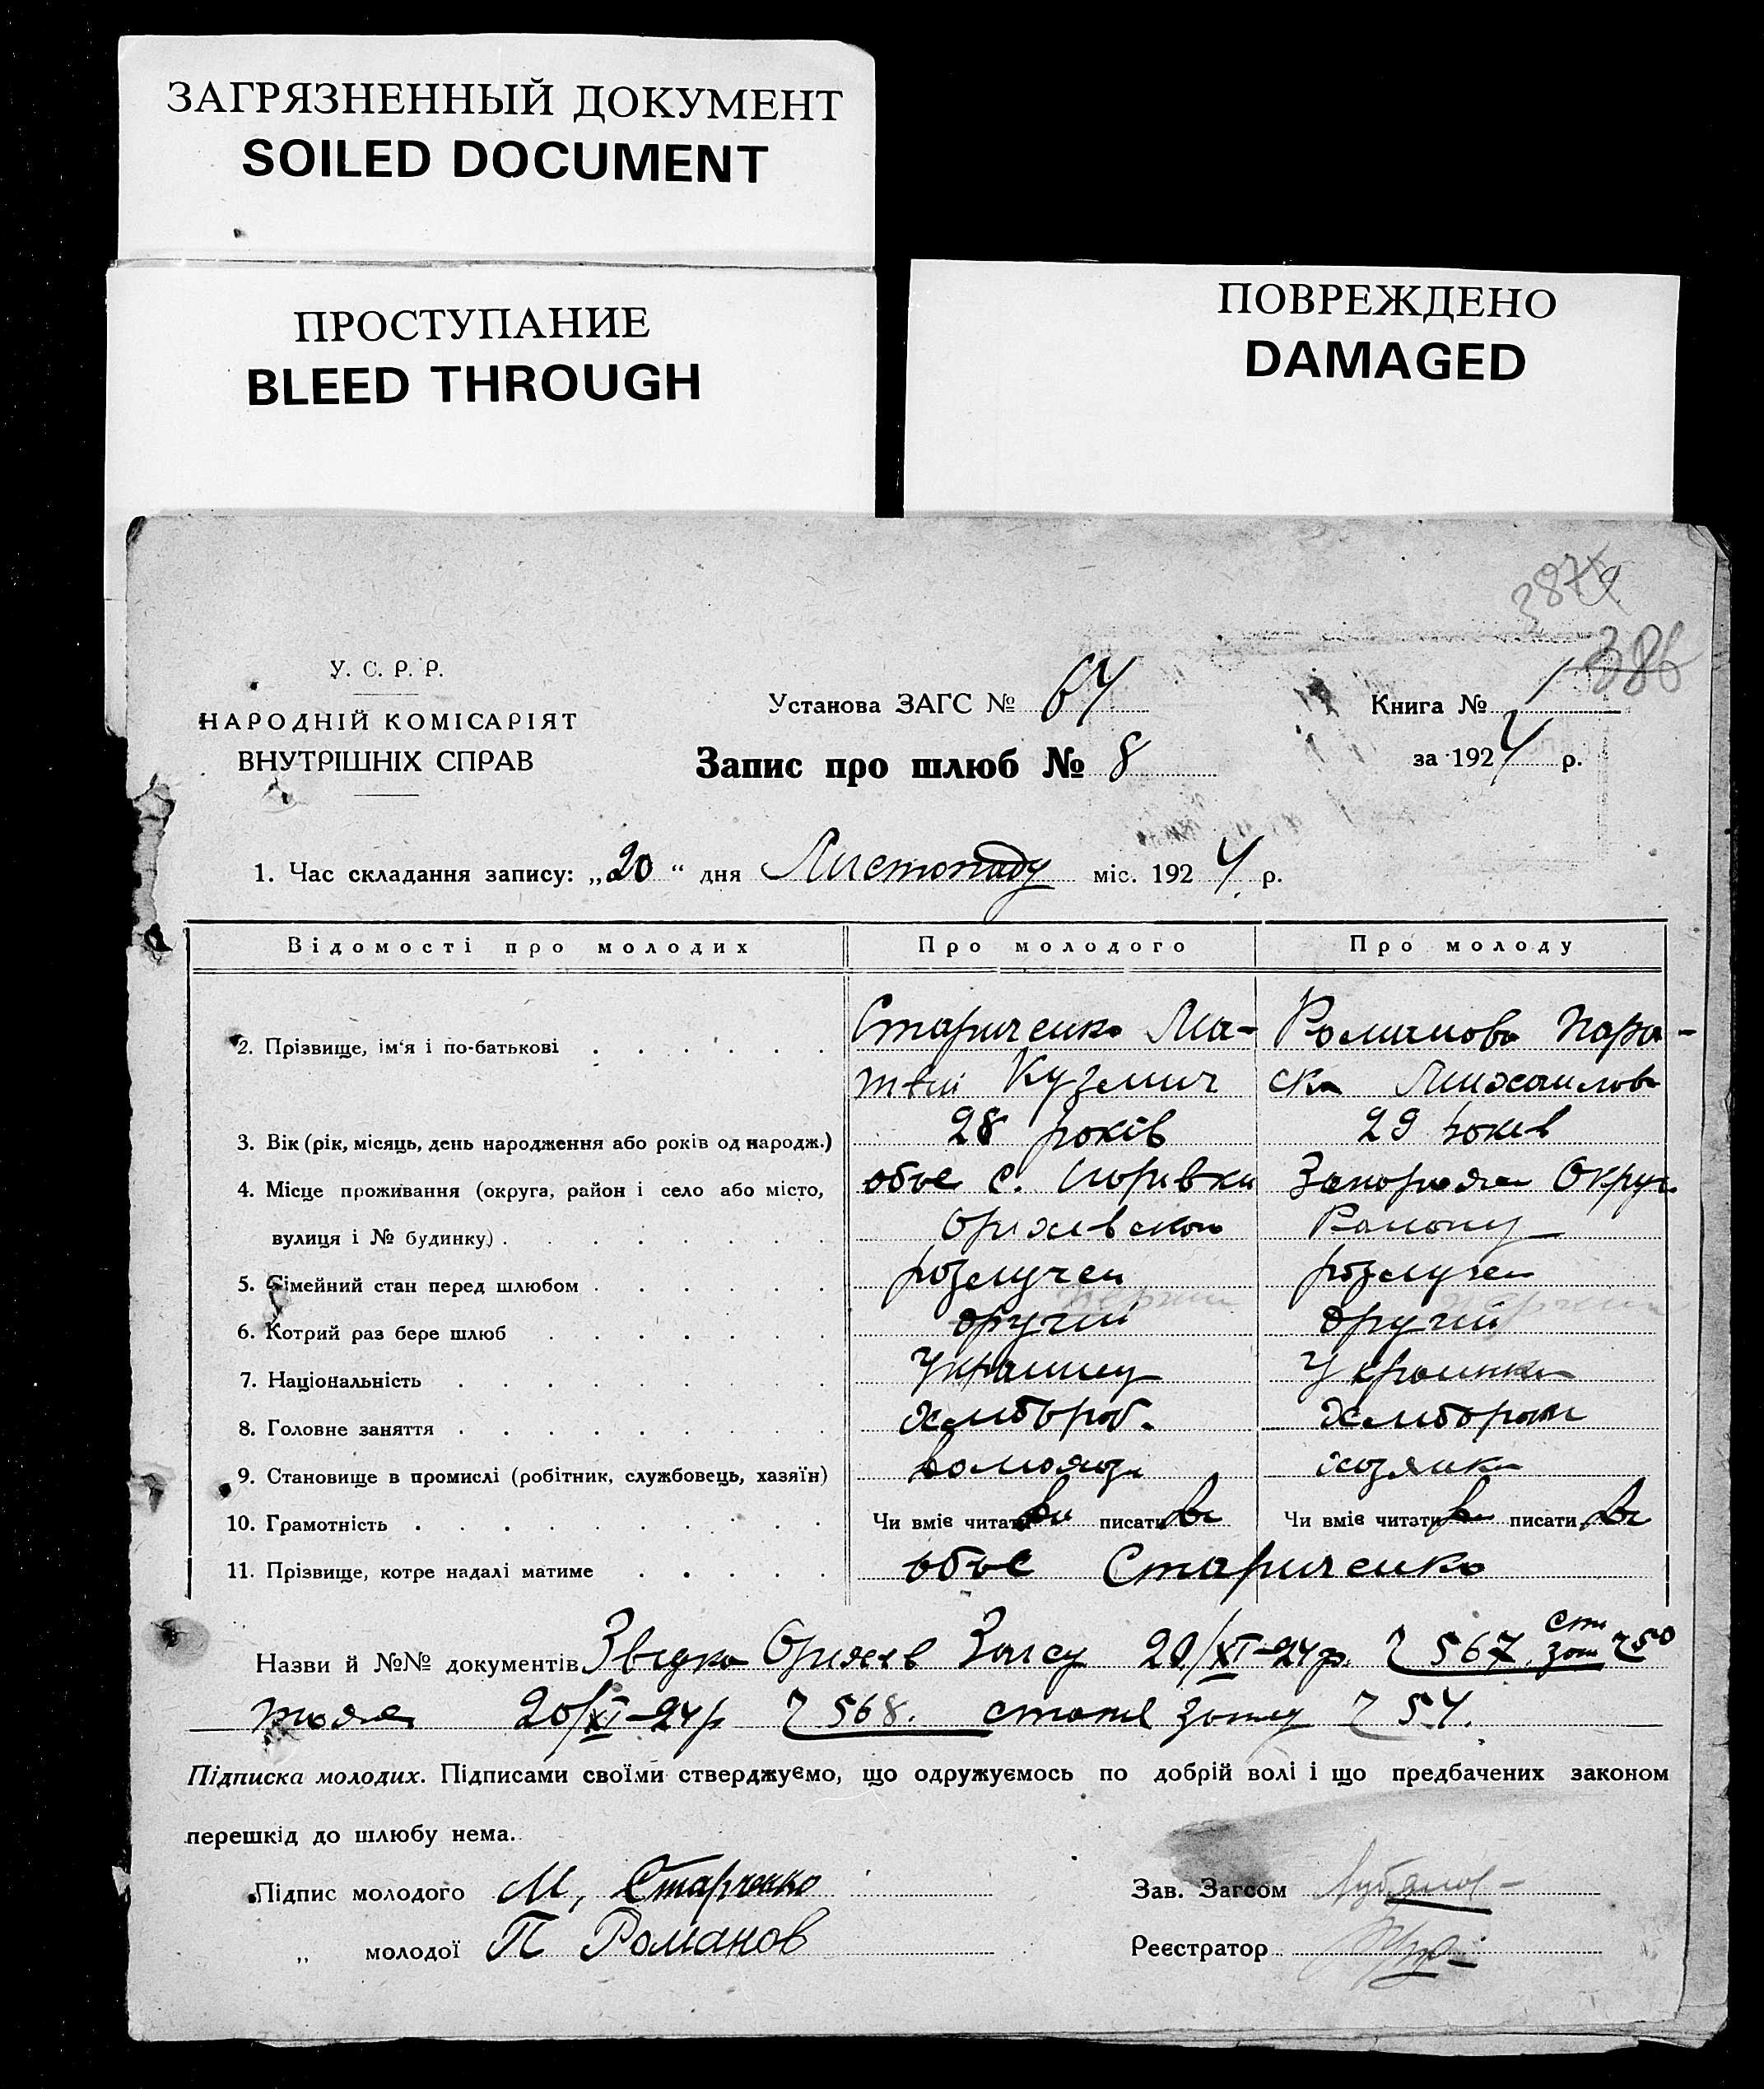 ЗАГРЯЗНЕННЫЙ ДОКУМЕНТ
SOILED DOCUMENT
ПРОСТУПАНИЕ
BLEED THROUGH
ПОВРЕЖДЕНО
DAMAGED
386
У. С. Р. Р.
НАРОДНІЙ КОМІСАРІЯТ
ВНУТРІШНІХ СПРАВ
Установа ЗАГС № 64
Книга № 1
Запис про шлюб № 8
за 1924 р.
1. Час складання запису: „20“ дня Листопаду міс. 1924 р.
Відомості про молодих Про молодого Про молоду
2. Прізвище, ім'я і по-батькові Стариченко Ма- Романова Пара-
твій Кузьмич ска Михаилов
3. Вік (рік, місяць, день народження або років од народж.) 28 років 29 років
4. Місце проживання (округа, район і село або місто, обое с. Запориж Округ.
вулиця і № будинку) Оріхівского Району
5. Сімейний стан перед шлюбом розлучен розлучен
6. Котрий раз бере шлюб другий другий
7. Національність Украинец Украинка
8. Головне заняття хлибороб. хлибороб
9. Становище в промислі (робітник, службовець, хазяїн) хозяика
10. Грамотність Чи вміє читати писати Чи вміє читати писати
11. Прізвище, котре надалі матиме обое Стариченко
Назви й №№ документів Звідка Оріхів Загсу 20/XI-24р. 567. 250
тоже 20/XI-24р 568. 54.
Підписка молодих. Підписами своїми стверджуємо, що одружуємось по добрій волі і що предбачених законом
перешкід до шлюбу нема.
Підпис молодого М, Старченко Зав. Загсом
„ молодої П Романов Реєстратор